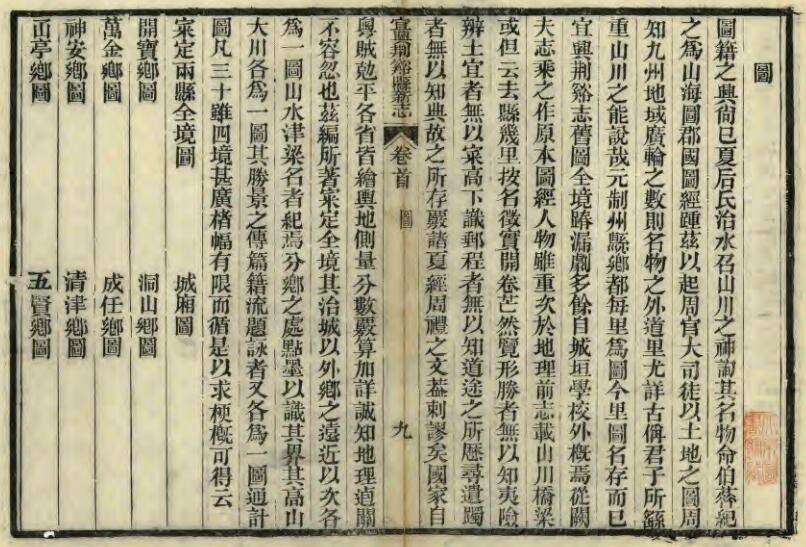 圖
圖籍之興尙已夏后氏治水召山川之神詢其名物命伯益紀
之爲山海圖郡國圖經踵茲以起周官大司徒以土地之圖周
知九州地域廣輪之數則名物之外道里尤詳古偁君子所繇
重山川之能說哉元制州縣鄉都每里爲圖今里圖名存而已
宜興荆谿志舊圖全境踳漏劘多餘自城垣學校外槪焉從闕
夫志乘之作原本圖經人物雖重次於地理前志載山川橋梁
或但云去縣幾里按名徵實開卷芒然覽形勝者無以知夷險
辨土宜者無以㝡高下識郵程者無以知道途之所歷尋遺躅
者無以知典故之所存覈諸夏經周禮之文葢刺謬矣國家自
宜興荆谿縣新志
卷首
圖
九
粵賊勘平各省皆繪輿地側量分數覈算加詳誠知地理逌關
不容忽也茲編所著㝡定全境其治城以外鄉之遠近以次各
爲一圖山水津梁名者紀焉分鄉之處點墨以識其界其高山
大川各爲一圖其勝景之傳篇籍流題詠者又各爲一圖通計
圖凡三十雖四境甚廣楮幅有限而循是以求梗槪可得云
㝡定兩縣全境圖
城廂圖
開寶鄉圖
洞山鄉圖
萬金鄉圖
成任鄉圖
神安鄉圖
清津鄉圖
亭鄉圖
五賢鄉圖